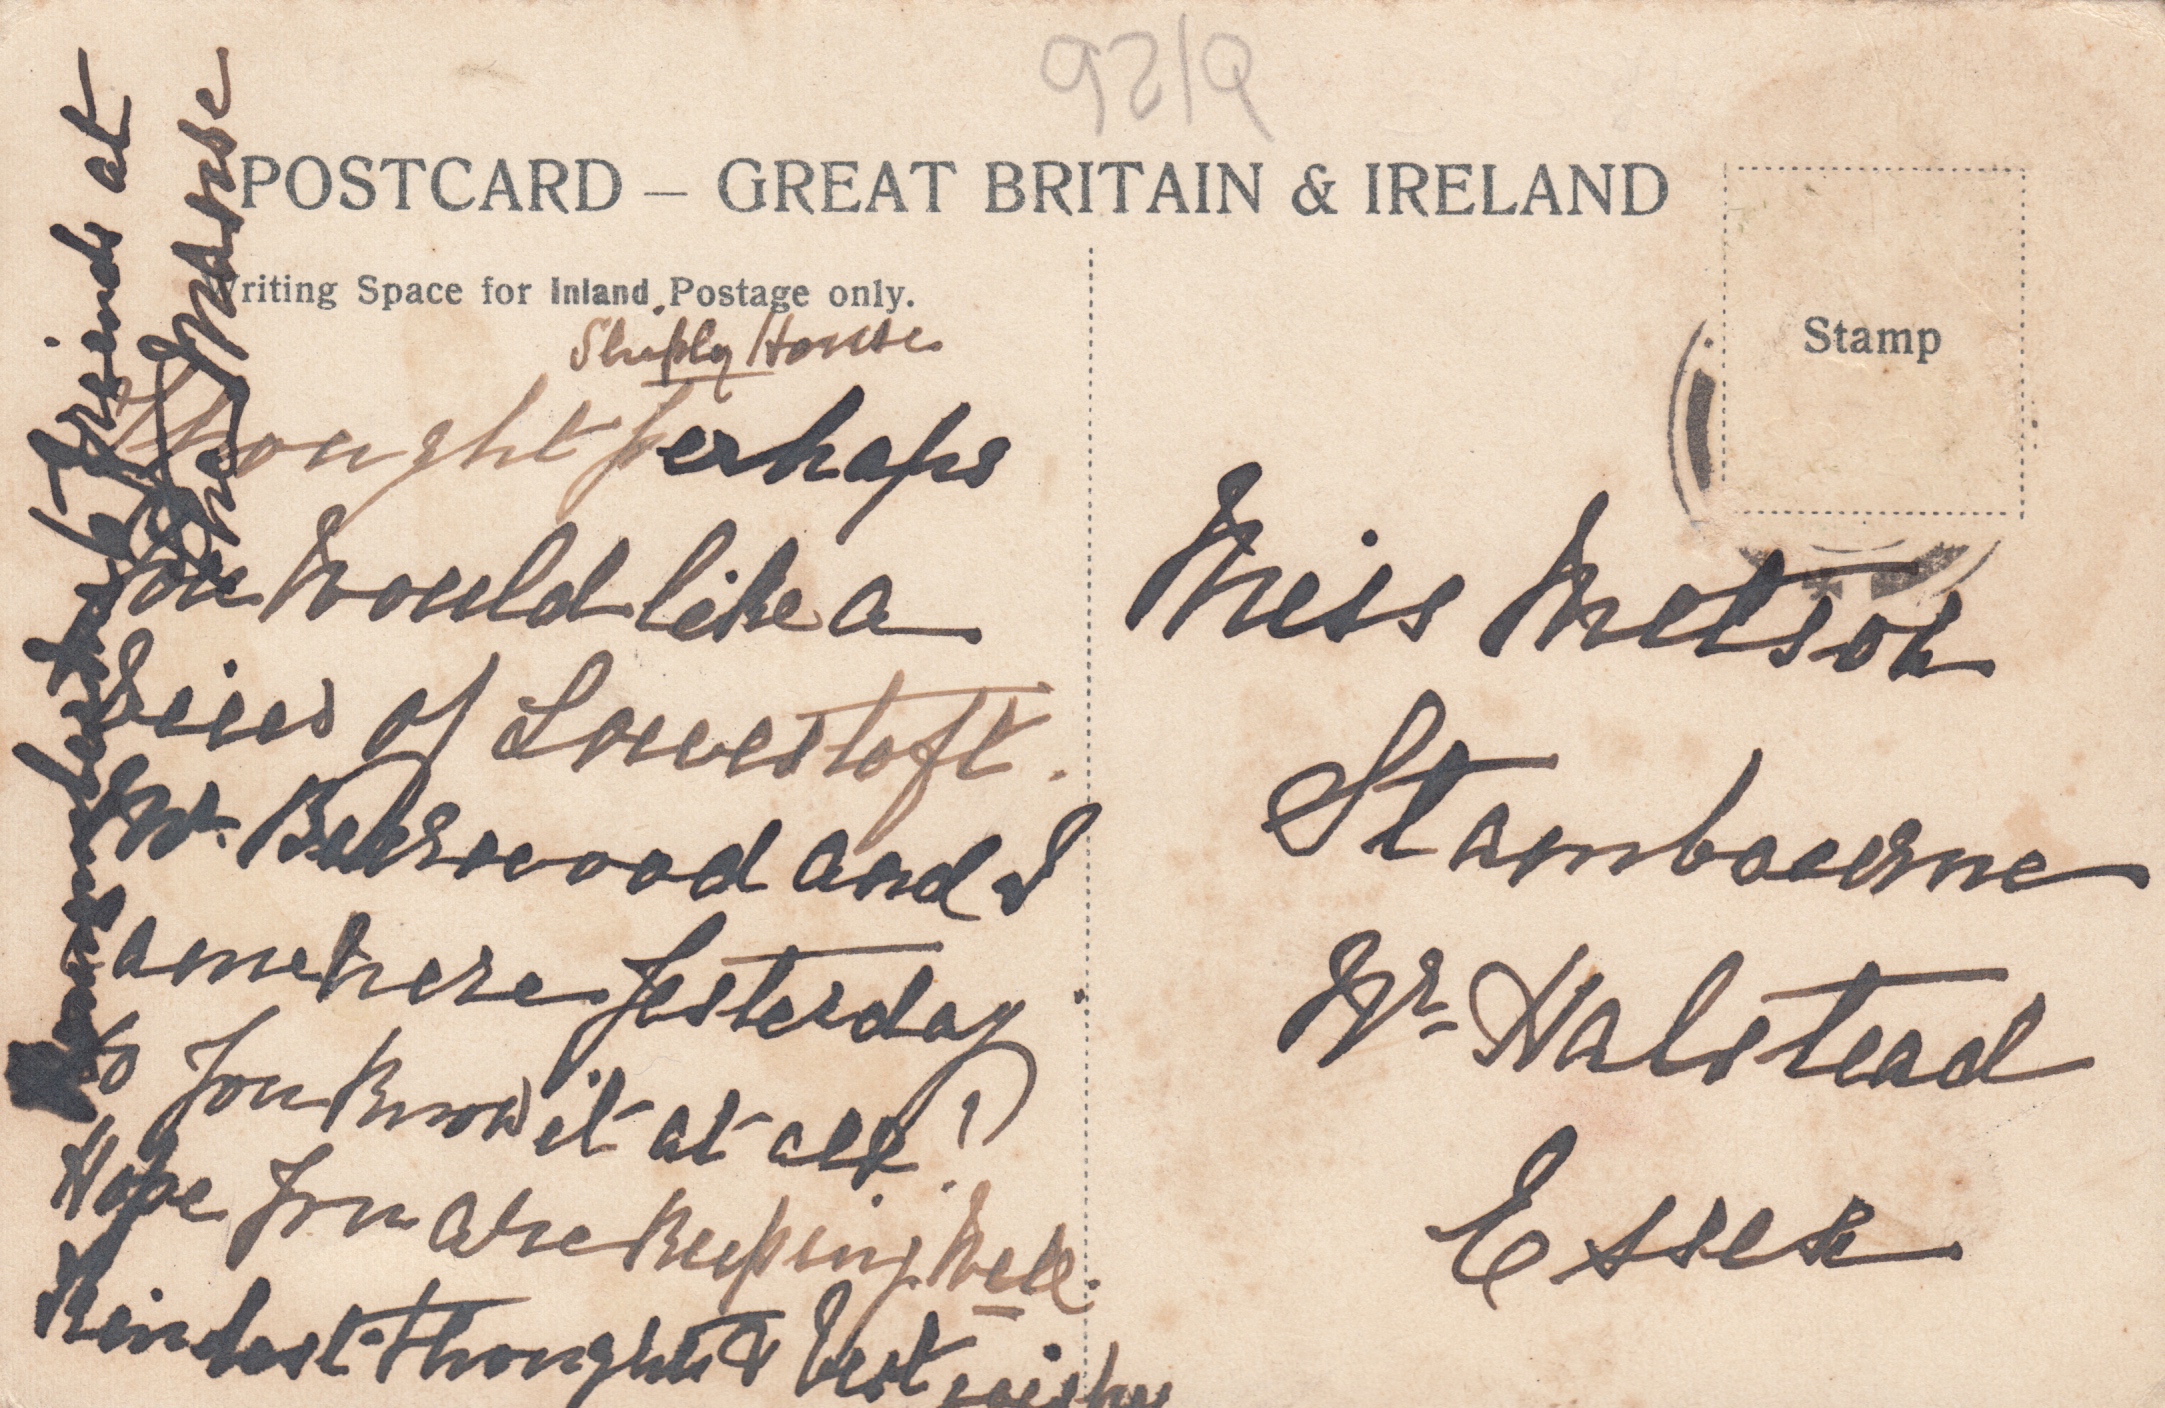 POSTCARD – GREAT BRITAIN & IRELAND
Writing Space for Inland Postage only.
Stamp
House
Thought perhaps
you would like a
View of Lowestoft.
Mr. and I
Came here yesterday.
Do you know it at all?
Hope you are keeping well.
Kindest thoughts & best wishes
friends at
the Manse
Miss Metson
Stambourne
Nr. Halstead
Essex